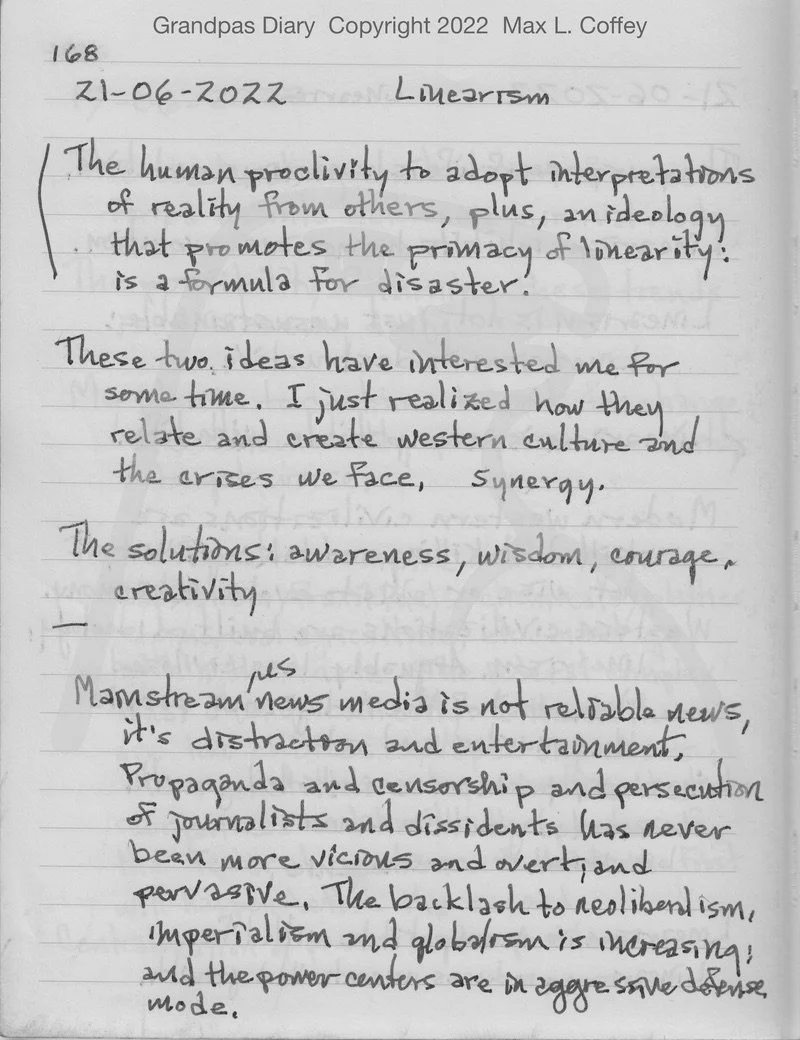 Grandpas Diary Copyright 2022 Max L. Coffey
168
21-06-2022 Linearism
The human proclivity to adopt interpretations
of reality from others, plus, an ideology
that promotes the primacy of linearity:
is a formula for disaster.
These two ideas have interested me for
some time. I just realized how they
relate and create western culture and
the crises we face, Synergy.
The solutions: awareness, wisdom, courage,
creativity
—
µs
Mainstream news media is not reliable news,
it's distraction and entertainment,
Propaganda and censorship and persecution
of journalists and dissidents has never
been more vicious and overt, and
pervasive. The backlash to neoliberalism,
imperialism and globalism is increasing;
and the power centers are in aggressive defense
mode.